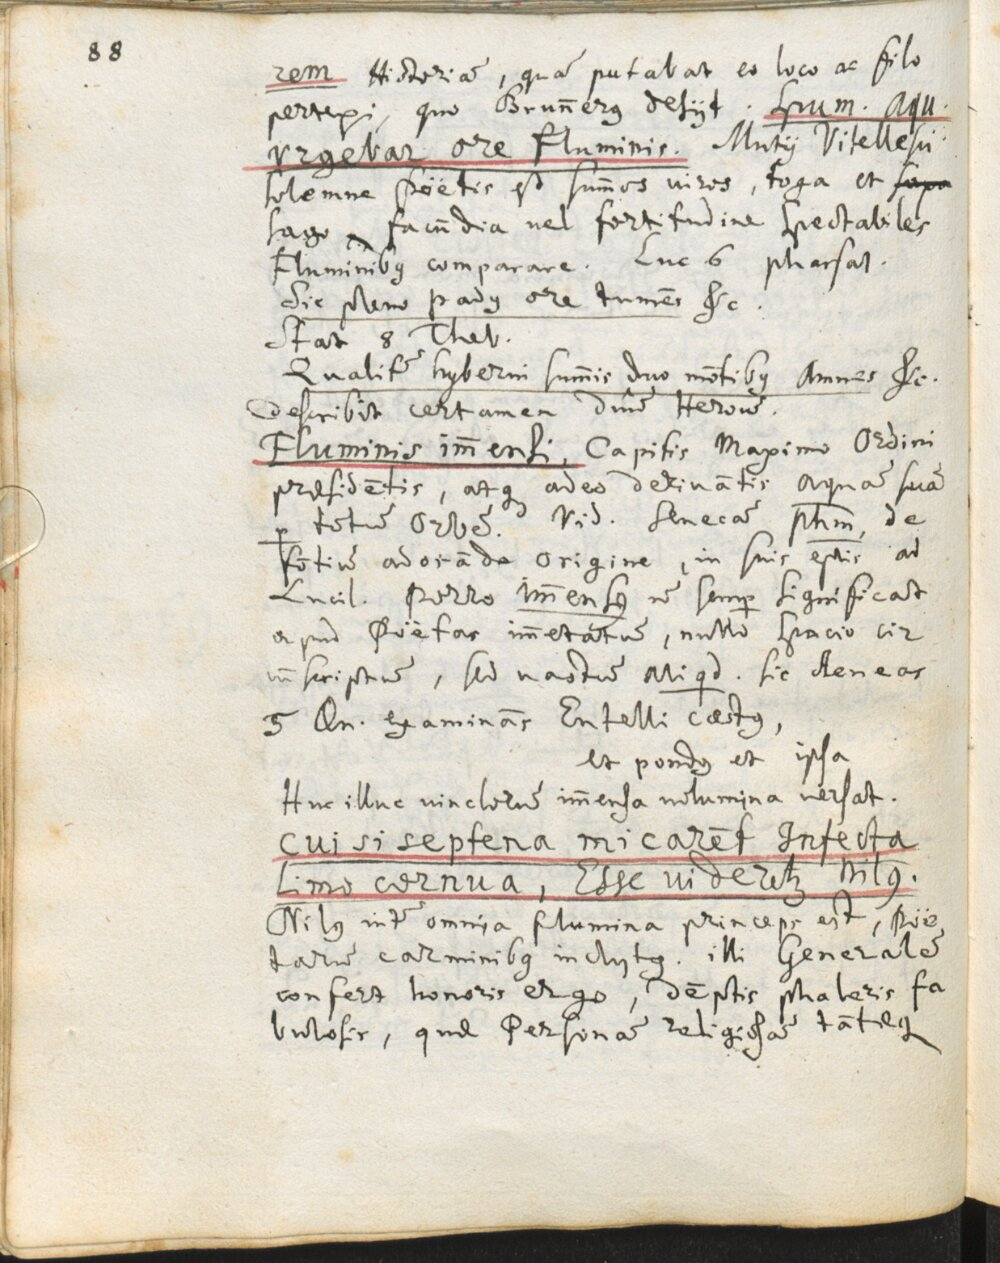 88
rem Historiā, quā putabat eo loco ac filo
pertexi, quo Brun̄erꝯ desijt. Spum. Aqu.
Vrgebat ore Fluminis. Mutij Vitellesij
solemne Poëtis est sum̄os uiros, toga et sapa
sago, facūdia uel fortitudine spectabiles
Fluminibꝯ comparare. Luc 6 pharsal.
Sic pleno padꝯ ore tumēs &c.
Stat 8 Theb.
Qualit̄ hyberni sum̄is duo mōtibꝯ Amnes &c.
describit certamen duū Heroū.
Fluminis im̄ensi, Capitis Maximo Ordini
præsidētis, atqꝫ adeo deriuātis aquā suā
ꝑ totū Orbē. Vid. Senecā phm, de
fōtiū adorāda origine, in suis eptis ad
Lucil. Porro im̄ensꝯ nō semꝑ significat
apud Poëtas im̄etātū, nullo spacio cir
cūscriptū, sed uastū aliqd. sic Aeneas
5 Æn. examinās Entelli cæstꝯ,
et pondꝯ et ipsa
Huc illuc uinclorū im̄ensa uolumina uersat.
cui si septena micarēt Infecta
Limo cornua, Esse uideretꝛ Nilꝯ.
Nilꝯ int̄ omnia flumina princeps est, Poë
tarū carminibꝯ inclytꝯ. illi Generalē
confert honoris ergo, dēptis phaleris fa
bulosis, quæ Personā religiosā tātæqꝫ